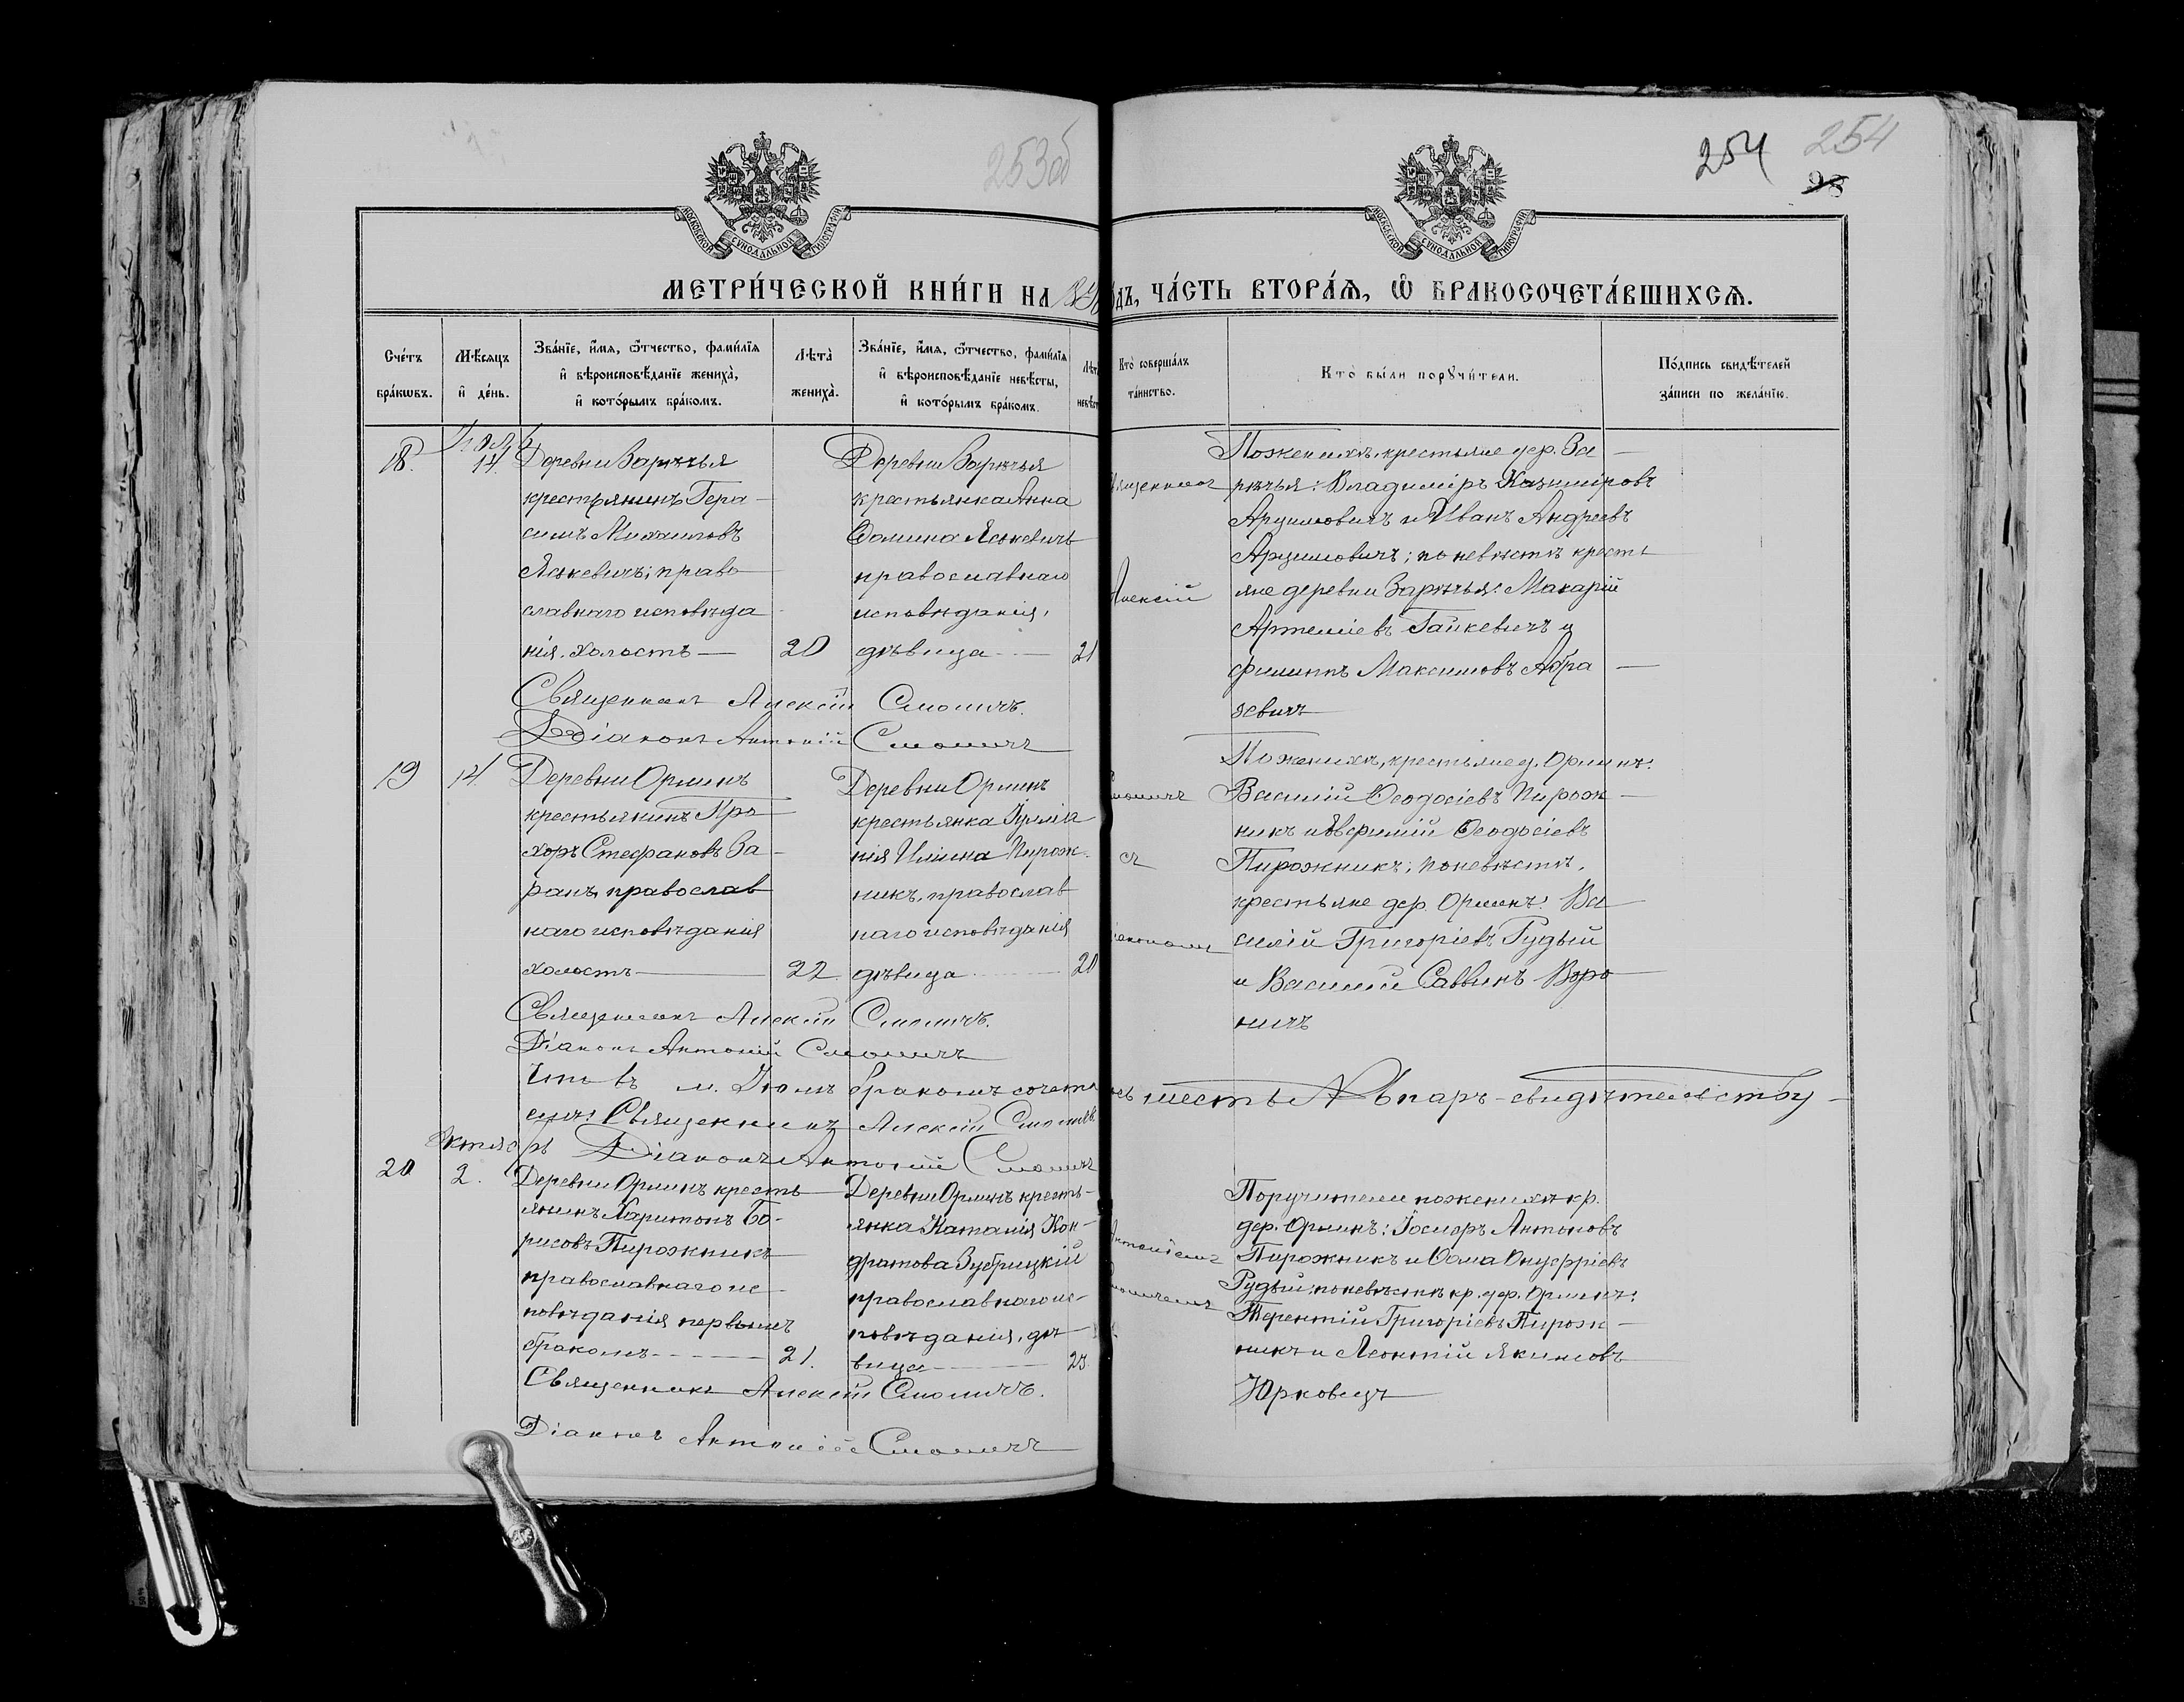 253об
254
254
98
МОСКОВСКОЙ СѴНОДАЛЬНОЙ ТИПОГРАФІИ
МОСКОВСКОЙ СѴНОДАЛЬНОЙ ТИПОГРАФІИ
МЕТРИ́ЧЕСКОЙ КНИ́ГИ НА
ДЪ, ЧА́СТЬ ВТОРА́Ѧ, Ѽ БРАКОСОЧЕТА́ВШИХСѦ.
Сче́тъ бра́кѡвъ.
Мѣ́сяцъ и҆ де́нь.
Зва́нїе, и҆́мѧ, ѻ҆́тчество, фами́лїѧ и҆ вѣроисповѣ́данїе жениха̀, и҆ кото́рымъ бра́комъ.
Лѣта̀ жениха̀.
Зва́нїе, и҆́мѧ, ѻ҆́тчество, фами́лїѧ и҆ вѣроисповѣ́данїе невѣ́сты, и҆ кото́рымъ бра́комъ.
Кто̀ соверша́лъ та́инство.
Кто̀ бы́ли порꙋчи́тели.
По́дпись свидѣ́телей за́писи по жела́нїю.
18.
14.
Деревни Зарѣчья
крестьянинъ Гера-
симъ Михаиловъ
Яскевичъ; право-
славнаго исповѣда
нія. холостъ — 20
Деревни Зарѣчья
крестьянка Анна
Ѳомина Яскевичъ
православнаго
исповѣданія,
дѣвица — 21
Алексій
По женихѣ, крестьяне дер. За-
рѣчья: Владиміръ Казиміровъ
Арцимовичъ и Иванъ Андреевъ
Арцимовичъ; по невѣстѣ кресть
яне деревни Зарѣчья: Макарій
Артеміевъ Гайкевичъ и
Филиппъ Максимовъ Абра-
зевичъ
Священникъ Алексій Смоличъ.
Діаконъ Антоній Смоличъ
19
14.
Деревни Орлинъ
крестьянинъ Про-
хоръ Стефановъ За-
ранъ, православ
наго исповѣданія
холостъ — 22
Деревни Орлинъ
крестьянка Іуліа
нія Ильина Пирож-
никъ, православ
наго исповѣданія
дѣвица 20
съ
По женихѣ, крестьяне д. Орлинъ:
Василій Ѳеодосіевъ Пирож-
никъ и Евфимій Ѳеодосіевъ
Пирожникъ; по невѣстѣ,
крестьяне дер. Орлинъ: Ва-
силій Григоріевъ Рудый
и Василій Саввинъ Воро-
ничъ
Священникъ Алексій Смоличъ.
Діаконъ Антоній Смоличъ
Что въ м. Іюлѣ бракомъ сочета
ось шесть 6 паръ свидѣтельству-
емъ: Священникъ Алексій Смоличъ.
Діаконъ Антоній Смоличъ
Октябрь
20
2.
Деревни Орлинъ кресть-
янинъ Харитонъ Бо-
рисовъ Пирожникъ
православнаго ис-
повѣданія первымъ
бракомъ — 21.
Деревни Орлинъ кресть-
янка Наталія Кон-
дратова Зубрицкій
православнаго ис-
повѣданія, дѣ-
вица — 23.
Поручители по женихѣ кр.
дер. Орлинъ: Іосифъ Антоновъ
Пирожникъ и Ѳома Онуфріевъ
Рудый; по невѣстѣ кр. дер. Орлинъ:
Терентій Григоріевъ Пирож-
никъ и Леонтій Якимовъ
Юрковецъ
Священникъ Алексій Смоличъ.
Діаконъ Антоній Смоличъ